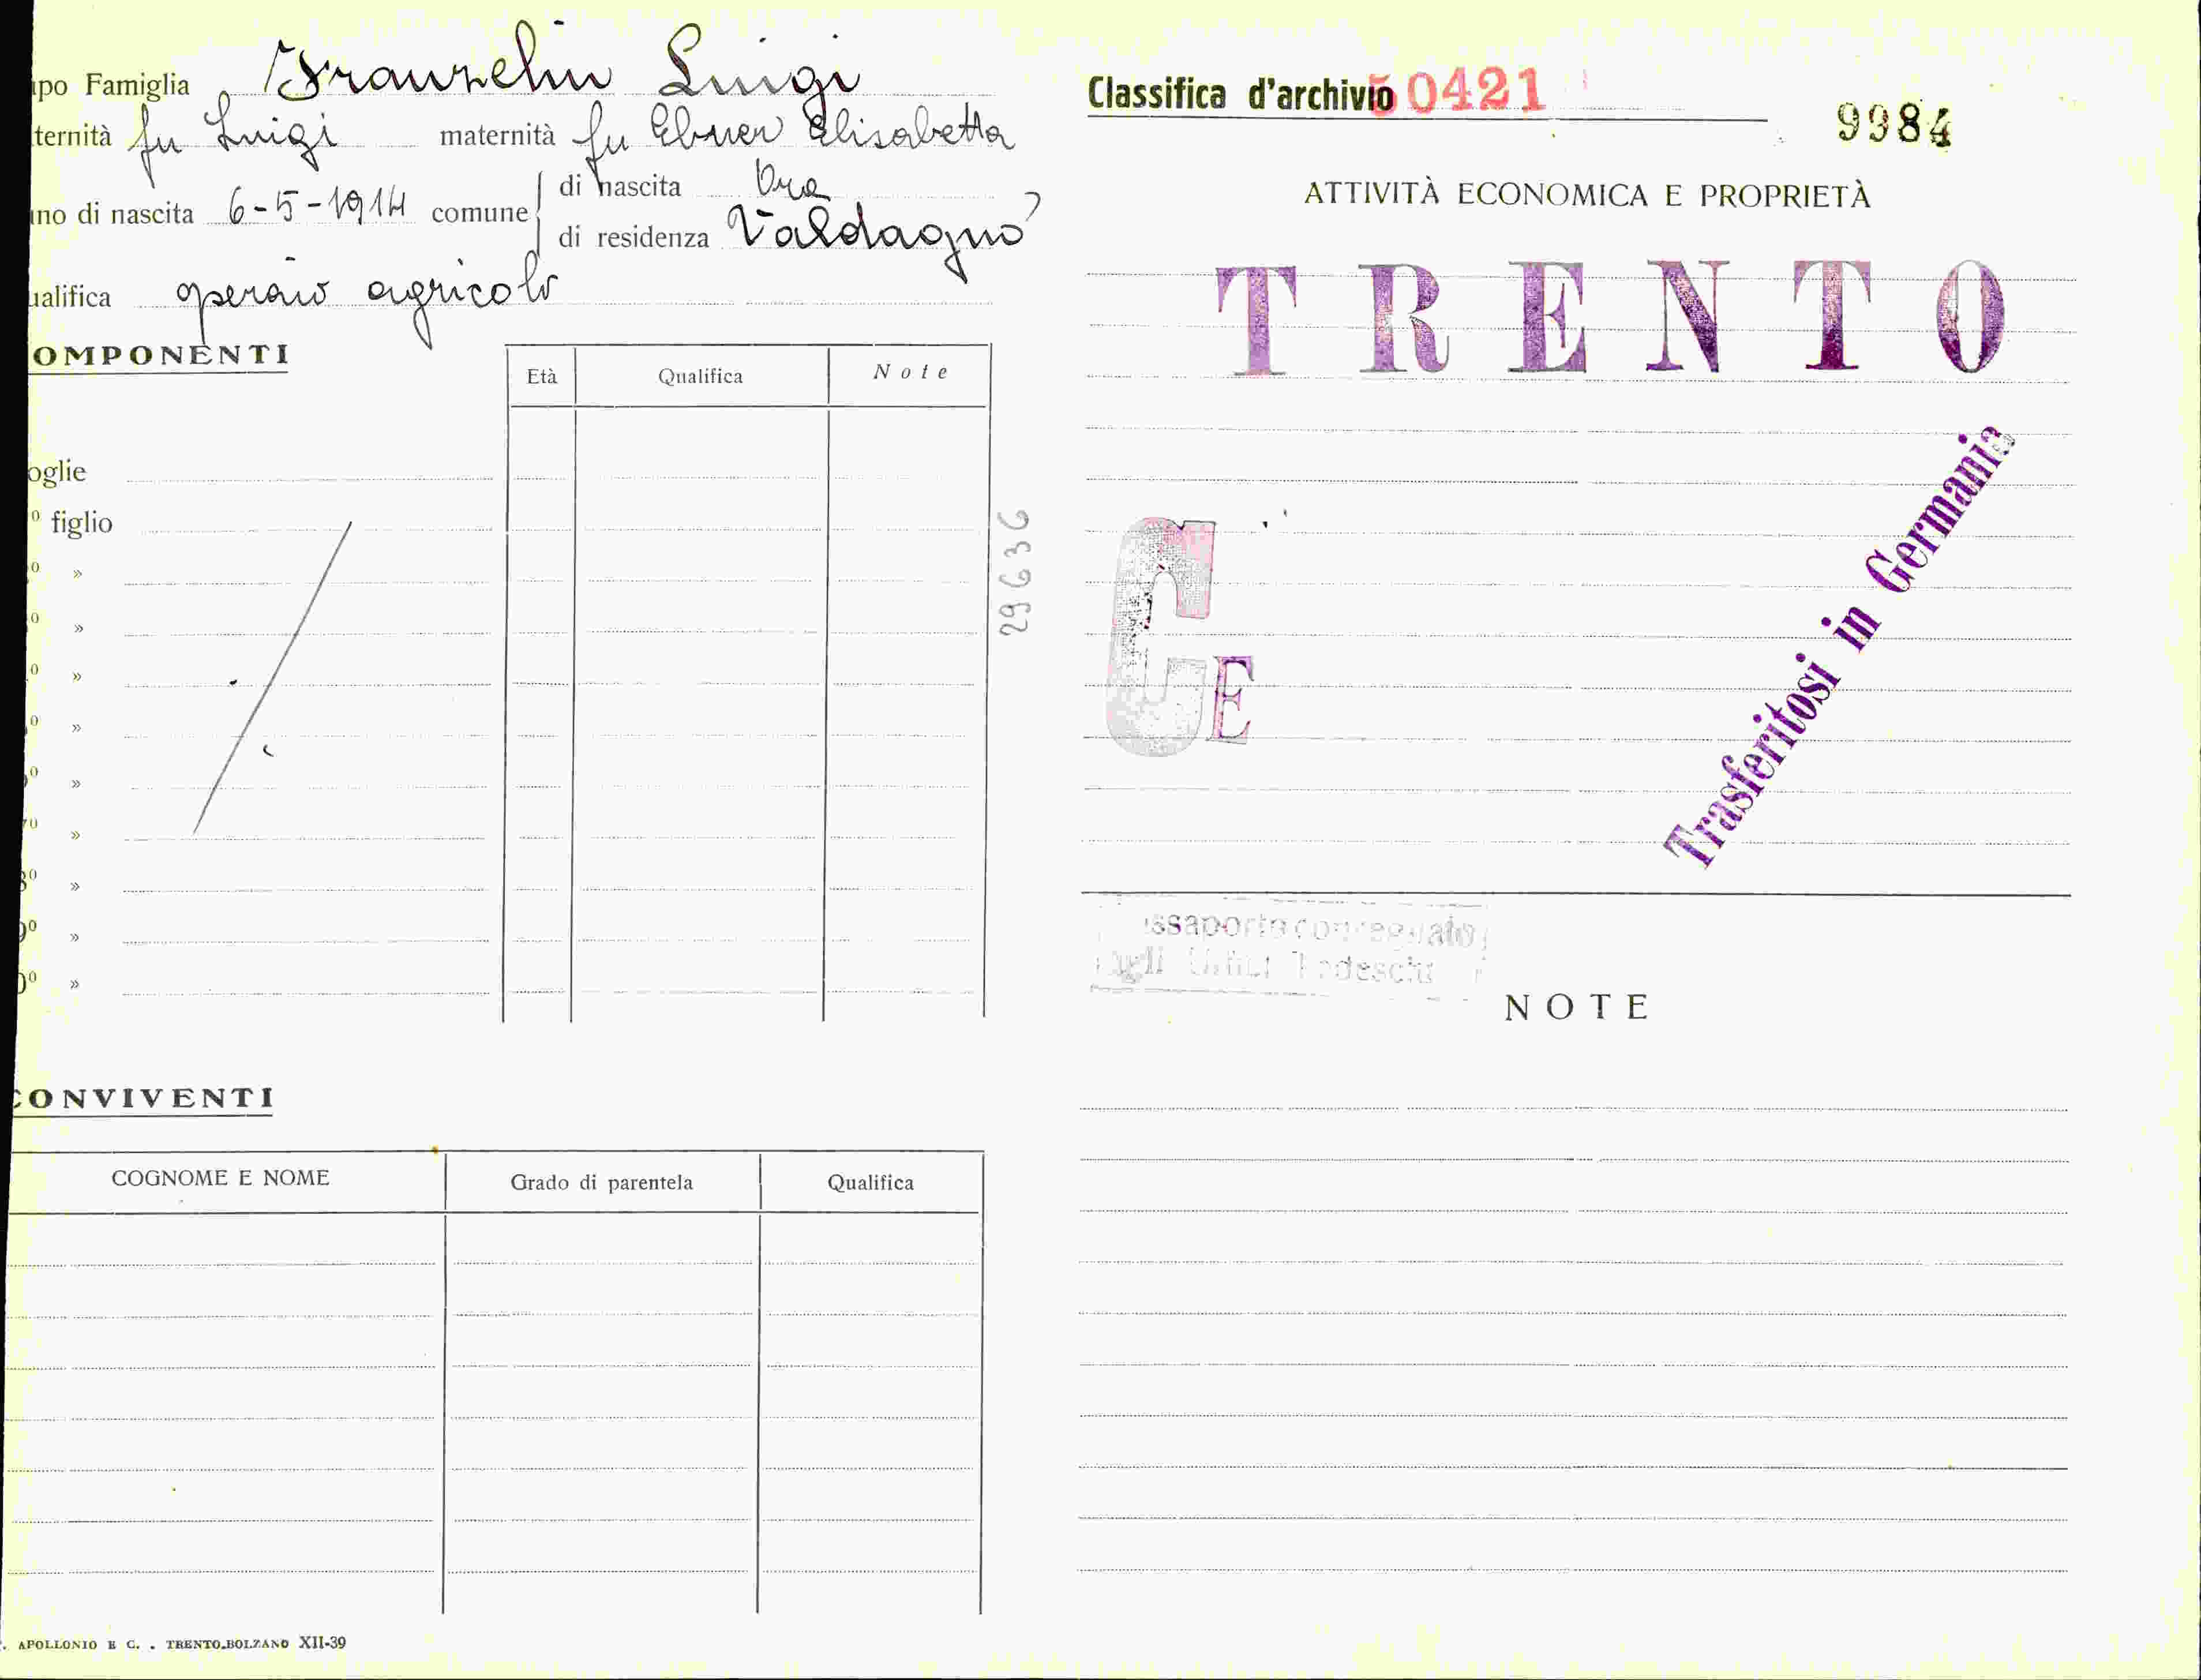 apo Famiglia Franzelin Luigi
ternità fu Luigi maternità fu Ebner Elisabetta
no di nascita 6-5-1914 comune di nascita Ora
di residenza Valdagno
ualifica operaio agricolo
OMPONENTI
Età Qualifica Note
oglie
o figlio
o »
o »
o »
o »
o »
70 »
80 »
90 »
0o »
29636
CONVIVENTI
COGNOME E NOME Grado di parentela Qualifica
. APOLLONIO E C. . TRENTO-BOLZANO XII-39
Classifica d'archivio 50421
9984
ATTIVITÀ ECONOMICA E PROPRIETÀ
TRENTO
CE
Trasferitosi in Germania
ssaporto consegnato
agli Uffici Tedeschi
NOTE